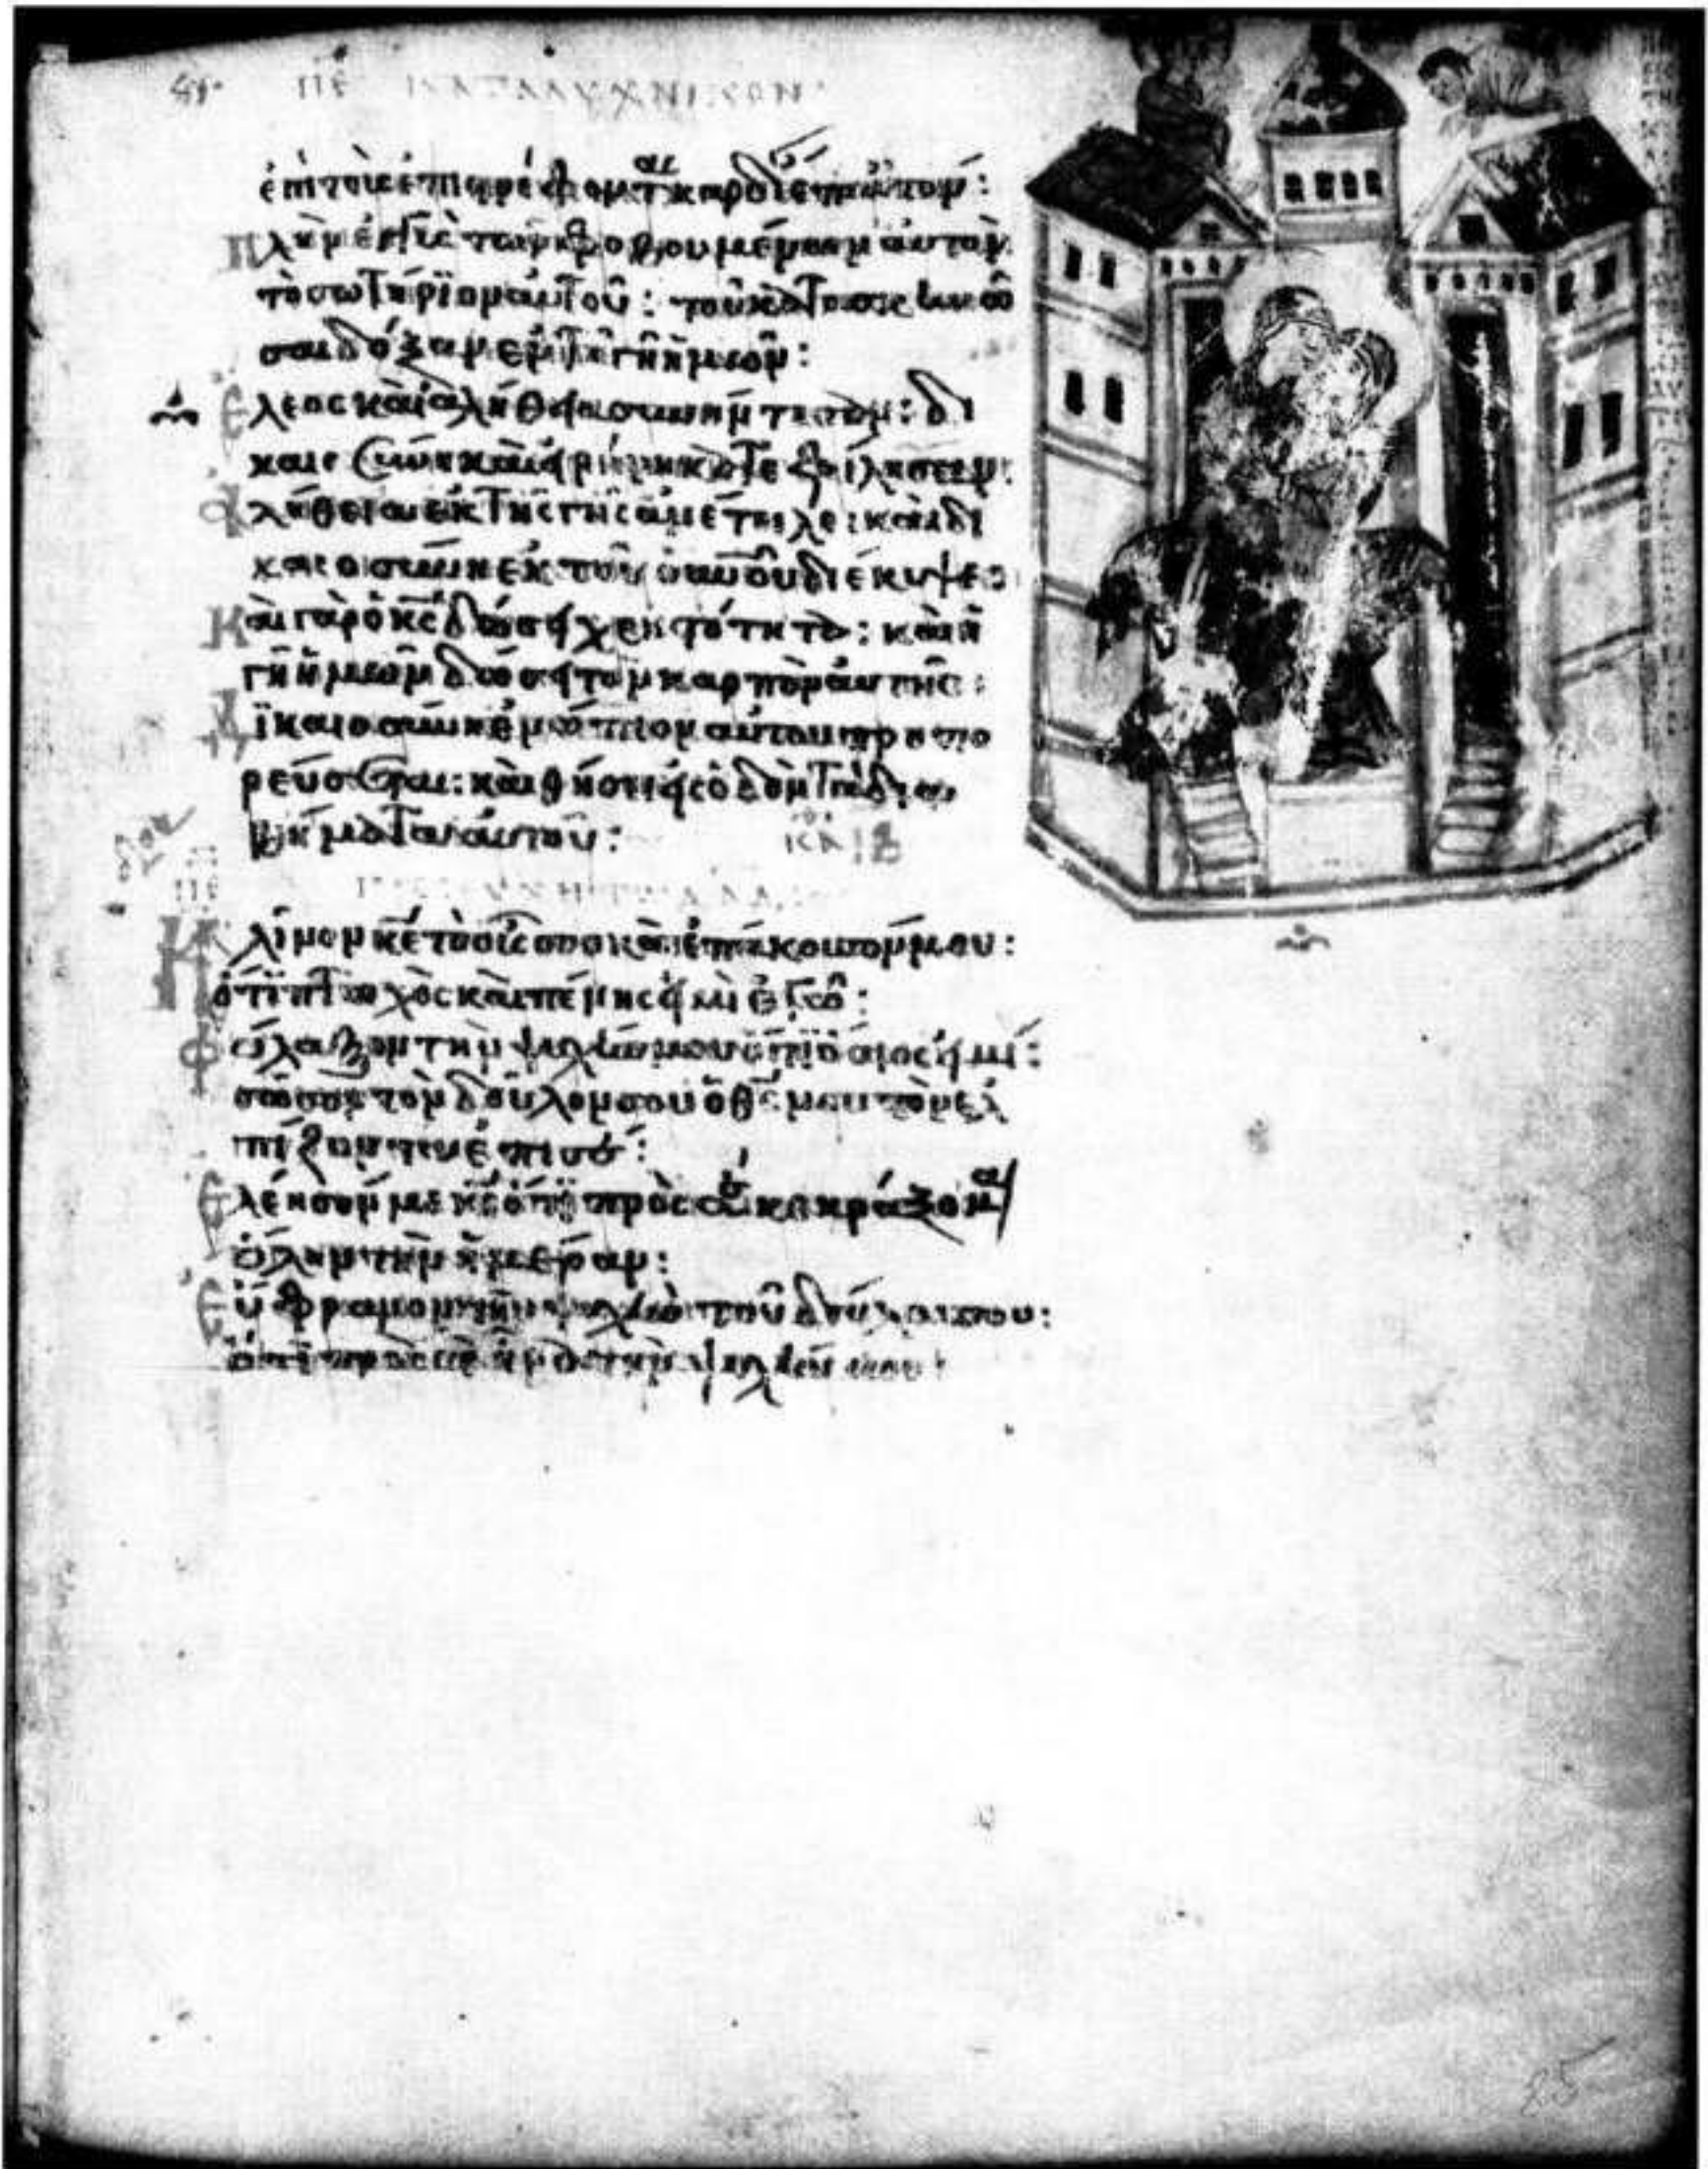 ΠΕ ΚΑΤΑ ΛΥΧΝΙΚΟΝ
ἐπὶ τοὺς ἐπιστρέφοντ(ας) καρδί(αν) ἐπ' αὐτόν:
Πλὴν ἐγγὺς τῶν φοβουμένων αὐτὸν
τὸ σωτήριον αὐτοῦ: τοῦ κατασκηνῶ
σαι δόξαν ἐν τῇ γῇ ἡμῶν:
Ἔλεος καὶ ἀλήθεια συνήντησαν: δι
καιοσύνη καὶ εἰρήνη κατεφίλησαν:
Ἀλήθεια ἐκ τῆς γῆς ἀνέτειλε: καὶ δι
καιοσύνη ἐκ τοῦ οὐνοῦ διέκυψε:
Καὶ γὰρ ὁ κς δώσει χρηστότητα: καὶ ἡ
γῆ ἡμῶν δώσει τὸν καρπὸν αὐτῆς:
Δικαιοσύνη ἐνώπιον αὐτοῦ προπο
ρεύσεται: καὶ θήσει εἰς ὁδὸν τὰ δια
βήματα αὐτοῦ:
ΠΕ
Κλῖνον κε τὸ οὖς σου καὶ ἐπάκουσόν μου:
ὅτι πτωχὸς καὶ πένης εἰμὶ ἐγώ:
Φύλαξον τὴν ψυχήν μου ὅτι ὅσιός εἰμι:
σῶσον τὸν δοῦλόν σου ὁ θς μου τὸν ἐλ
πίζοντα ἐπὶ σέ:
Ἐλέησόν με κε ὅτι πρὸς σὲ κεκράξομαι
ὅλην τὴν ἡμέραν:
Εὔφρανον τὴν ψυχὴν τοῦ δούλου σου:
ὅτι πρὸς σὲ ἦρα τὴν ψυχήν μου:
25